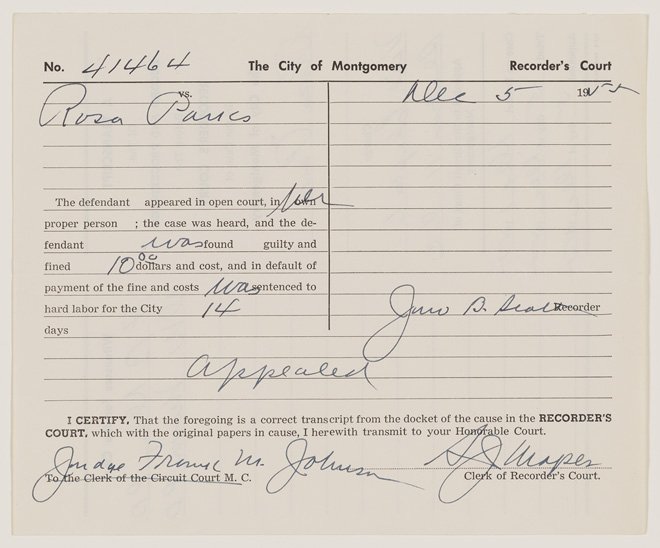 No. 41464 The City of Montgomery Recorder's Court
vs. Dec 5 1955
Rosa Parks
The defendant appeared in open court, in her own
proper person ; the case was heard, and the de-
fendant was found guilty and
fined 10 00 dollars and cost, and in default of
payment of the fine and costs was sentenced to
hard labor for the City 14
days
Jno B. Scott Recorder
Appealed
I CERTIFY, That the foregoing is a correct transcript from the docket of the cause in the RECORDER'S
COURT, which with the original papers in cause, I herewith transmit to your Honorable Court.
Judge Frank M. Johnson
To the Clerk of the Circuit Court M. C. Clerk of Recorder's Court.